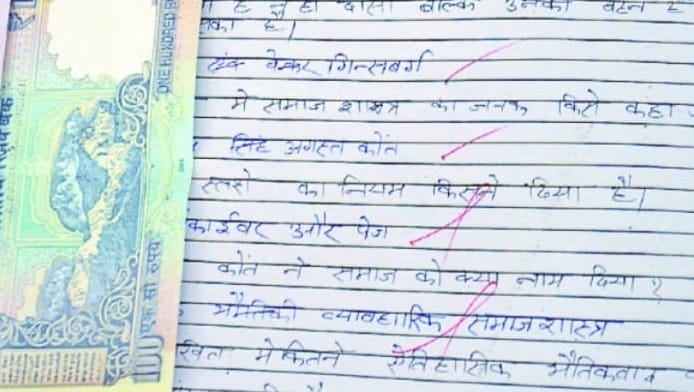 ही दासी बल्कि उनकी बहन
है।
वेस्कर गिन्सबर्ग
मे समाज शास्त्र का जनक किसे कहा
सिंह अगस्त कोंत
स्तरो का नियम किसने दिया है।
काईवर और पेज
कोंत ने समाज को क्या नाम दिया ?
भौतिकी व्यावहारिक समाजशास्त्र
मे कितने ऐतिहासिक भौतिकवाद
ONE HUNDRED
100 एक सौ रुपय